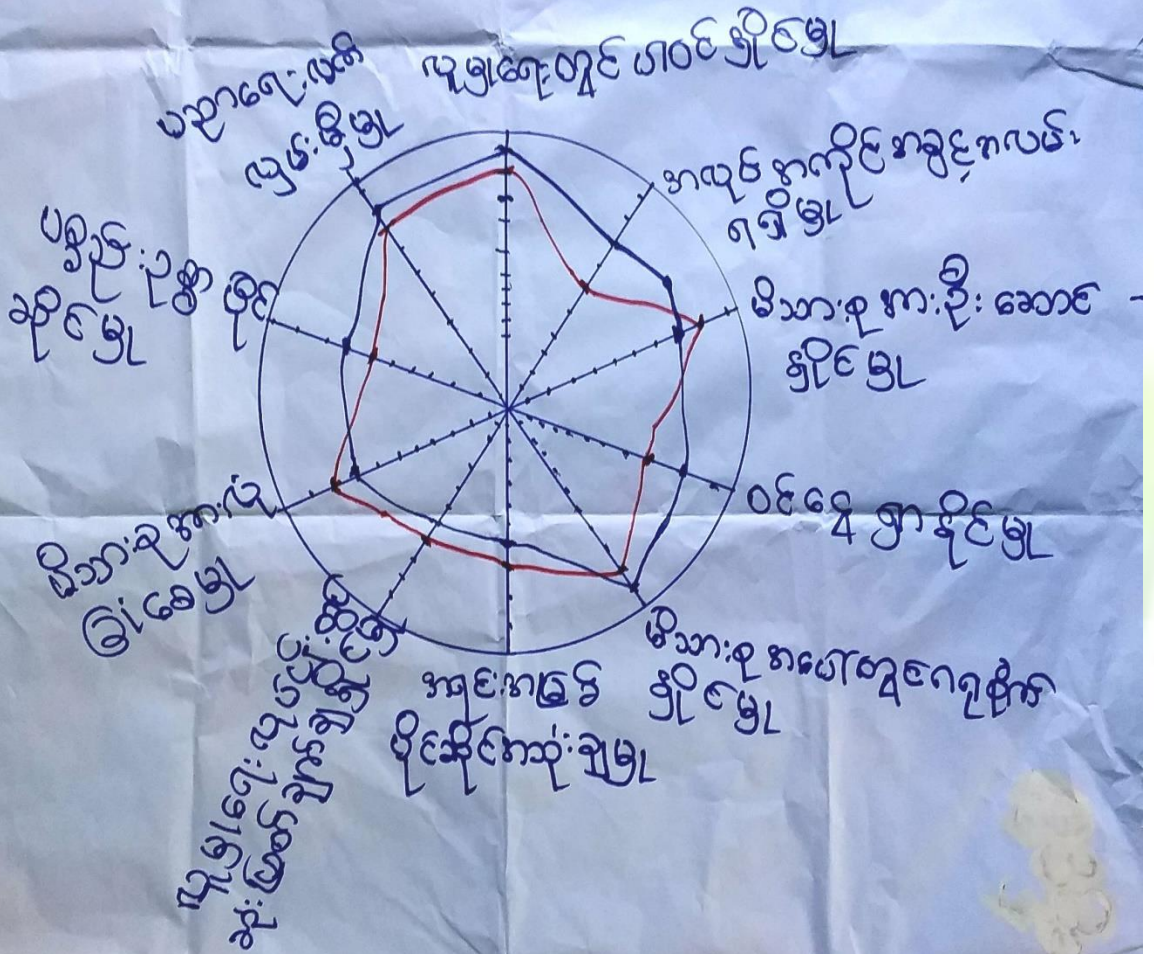 လူမှုရေးတွင် ပါဝင်နှိုင်မှု
အလုပ်အကိုင်အခွင့်အလမ်း
ရရှိမှု
မိသားစုအားဦးဆောင်
နှိုင်မှု
ဝင်ငွေရှာနိုင်မှု
မိသားစုအပေါ်တွင်ဂရုစိုက်
နှိုင်မှု
အရင်းအမြစ်
ပိုင်ဆိုင်အသုံးချမှု
လူမှုရေးလုပ်ပိုင်
ဆုံးဖြတ်ချက်ချ
မိသားစုအားလုံ
ခြုံစေမှု
ပစ္စည်းဥစ္စာ ပိုင်
ဆိုင်မှု
ပညာရေးလက်
လှမ်းမှီမှု